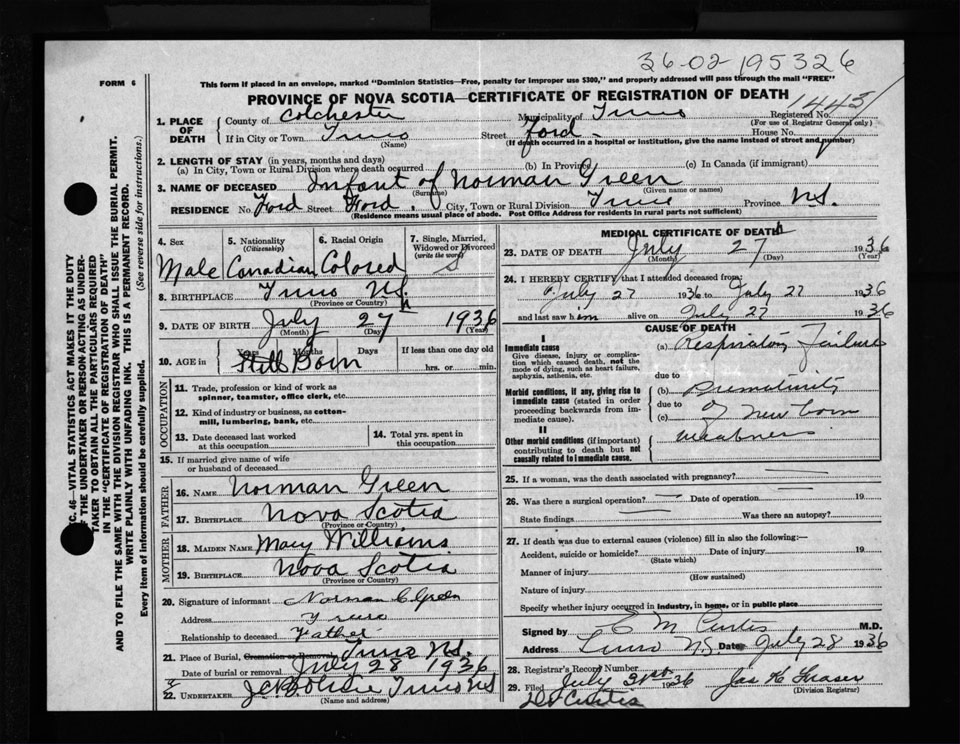 36-02-195326
FORM 6
This form if placed in an envelope, marked "Dominion Statistics—Free, penalty for improper use $300," and properly addressed will pass through the mail "FREE"
PROVINCE OF NOVA SCOTIA—CERTIFICATE OF REGISTRATION OF DEATH
1. PLACE OF DEATH
County of Colchester Municipality of Truro Registered No. 1445
(For use of Registrar General only)
If in City or Town Truro Street Ford House No.
(Name) (If death occurred in a hospital or institution, give the name instead of street and number)
2. LENGTH OF STAY (in years, months and days)
(a) In City, Town or Rural Division where death occurred (b) In Province (c) In Canada (if immigrant)
3. NAME OF DECEASED Infant of Norman Green
(Surname) (Given name or names)
RESIDENCE No. Ford Street Ford City, Town or Rural Division Truro Province N.S.
(Residence means usual place of abode. Post Office Address for residents in rural parts not sufficient)
4. Sex 5. Nationality (Citizenship) 6. Racial Origin 7. Single, Married, Widowed or Divorced (write the word)
Male Canadian Colored S
8. BIRTHPLACE Truro N.S.
(Province or Country)
9. DATE OF BIRTH July 27 1936
(Month) (Day) (Year)
10. AGE in Years Months Days If less than one day old
Still Born hrs. or min.
OCCUPATION
11. Trade, profession or kind of work as spinner, teamster, office clerk, etc.
12. Kind of industry or business, as cotton-mill, lumbering, bank, etc.
13. Date deceased last worked at this occupation
14. Total yrs. spent in this occupation
15. If married give name of wife or husband of deceased
FATHER
16. NAME Norman Green
17. BIRTHPLACE Nova Scotia
(Province or Country)
MOTHER
18. MAIDEN NAME Mary Williams
19. BIRTHPLACE Nova Scotia
(Province or Country)
20. Signature of informant Norman C. Green
Address Truro
Relationship to deceased Father
21. Place of Burial, Cremation or Removal Truro N.S.
Date of burial or removal July 28 1936
22. UNDERTAKER Truro N.S
(Name and address)
MEDICAL CERTIFICATE OF DEATH
23. DATE OF DEATH July 27th 1936
(Month) (Day) (Year)
24. I HEREBY CERTIFY that I attended deceased from:
July 27 1936 to July 27 1936
and last saw him alive on July 27 1936
CAUSE OF DEATH
I
Immediate cause
Give disease, injury or complication which caused death, not the mode of dying, such as heart failure, asphyxia, asthenia, etc.
(a) Respiratory Failure
due to
Morbid conditions, if any, giving rise to immediate cause (stated in order proceeding backwards from immediate cause).
(b) Prematurity
due to
(c) of new born
II
Other morbid conditions (if important) contributing to death but not causally related to immediate cause.
weakness
25. If a woman, was the death associated with pregnancy?
26. Was there a surgical operation? Date of operation 19
State findings Was there an autopsy?
27. If death was due to external causes (violence) fill in also the following:—
Accident, suicide or homicide? Date of injury 19
(State which)
Manner of injury
(How sustained)
Nature of injury
Specify whether injury occurred in industry, in home, or in public place
Signed by E M Curtis M.D.
Address Truro N.S. Date July 28 1936
28. Registrar's Record Number
29. Filed July 31st 1936 Jas H Fraser
(Division Registrar)
Curtis
C. 46—VITAL STATISTICS ACT MAKES IT THE DUTY
OF THE UNDERTAKER OR PERSON ACTING AS UNDERTAKER TO OBTAIN ALL THE PARTICULARS REQUIRED
IN THE "CERTIFICATE OF REGISTRATION OF DEATH"
AND TO FILE THE SAME WITH THE DIVISION REGISTRAR WHO SHALL ISSUE THE BURIAL PERMIT.
WRITE PLAINLY WITH UNFADING INK. THIS IS A PERMANENT RECORD.
Every item of information should be carefully supplied. (See reverse side for instructions.)